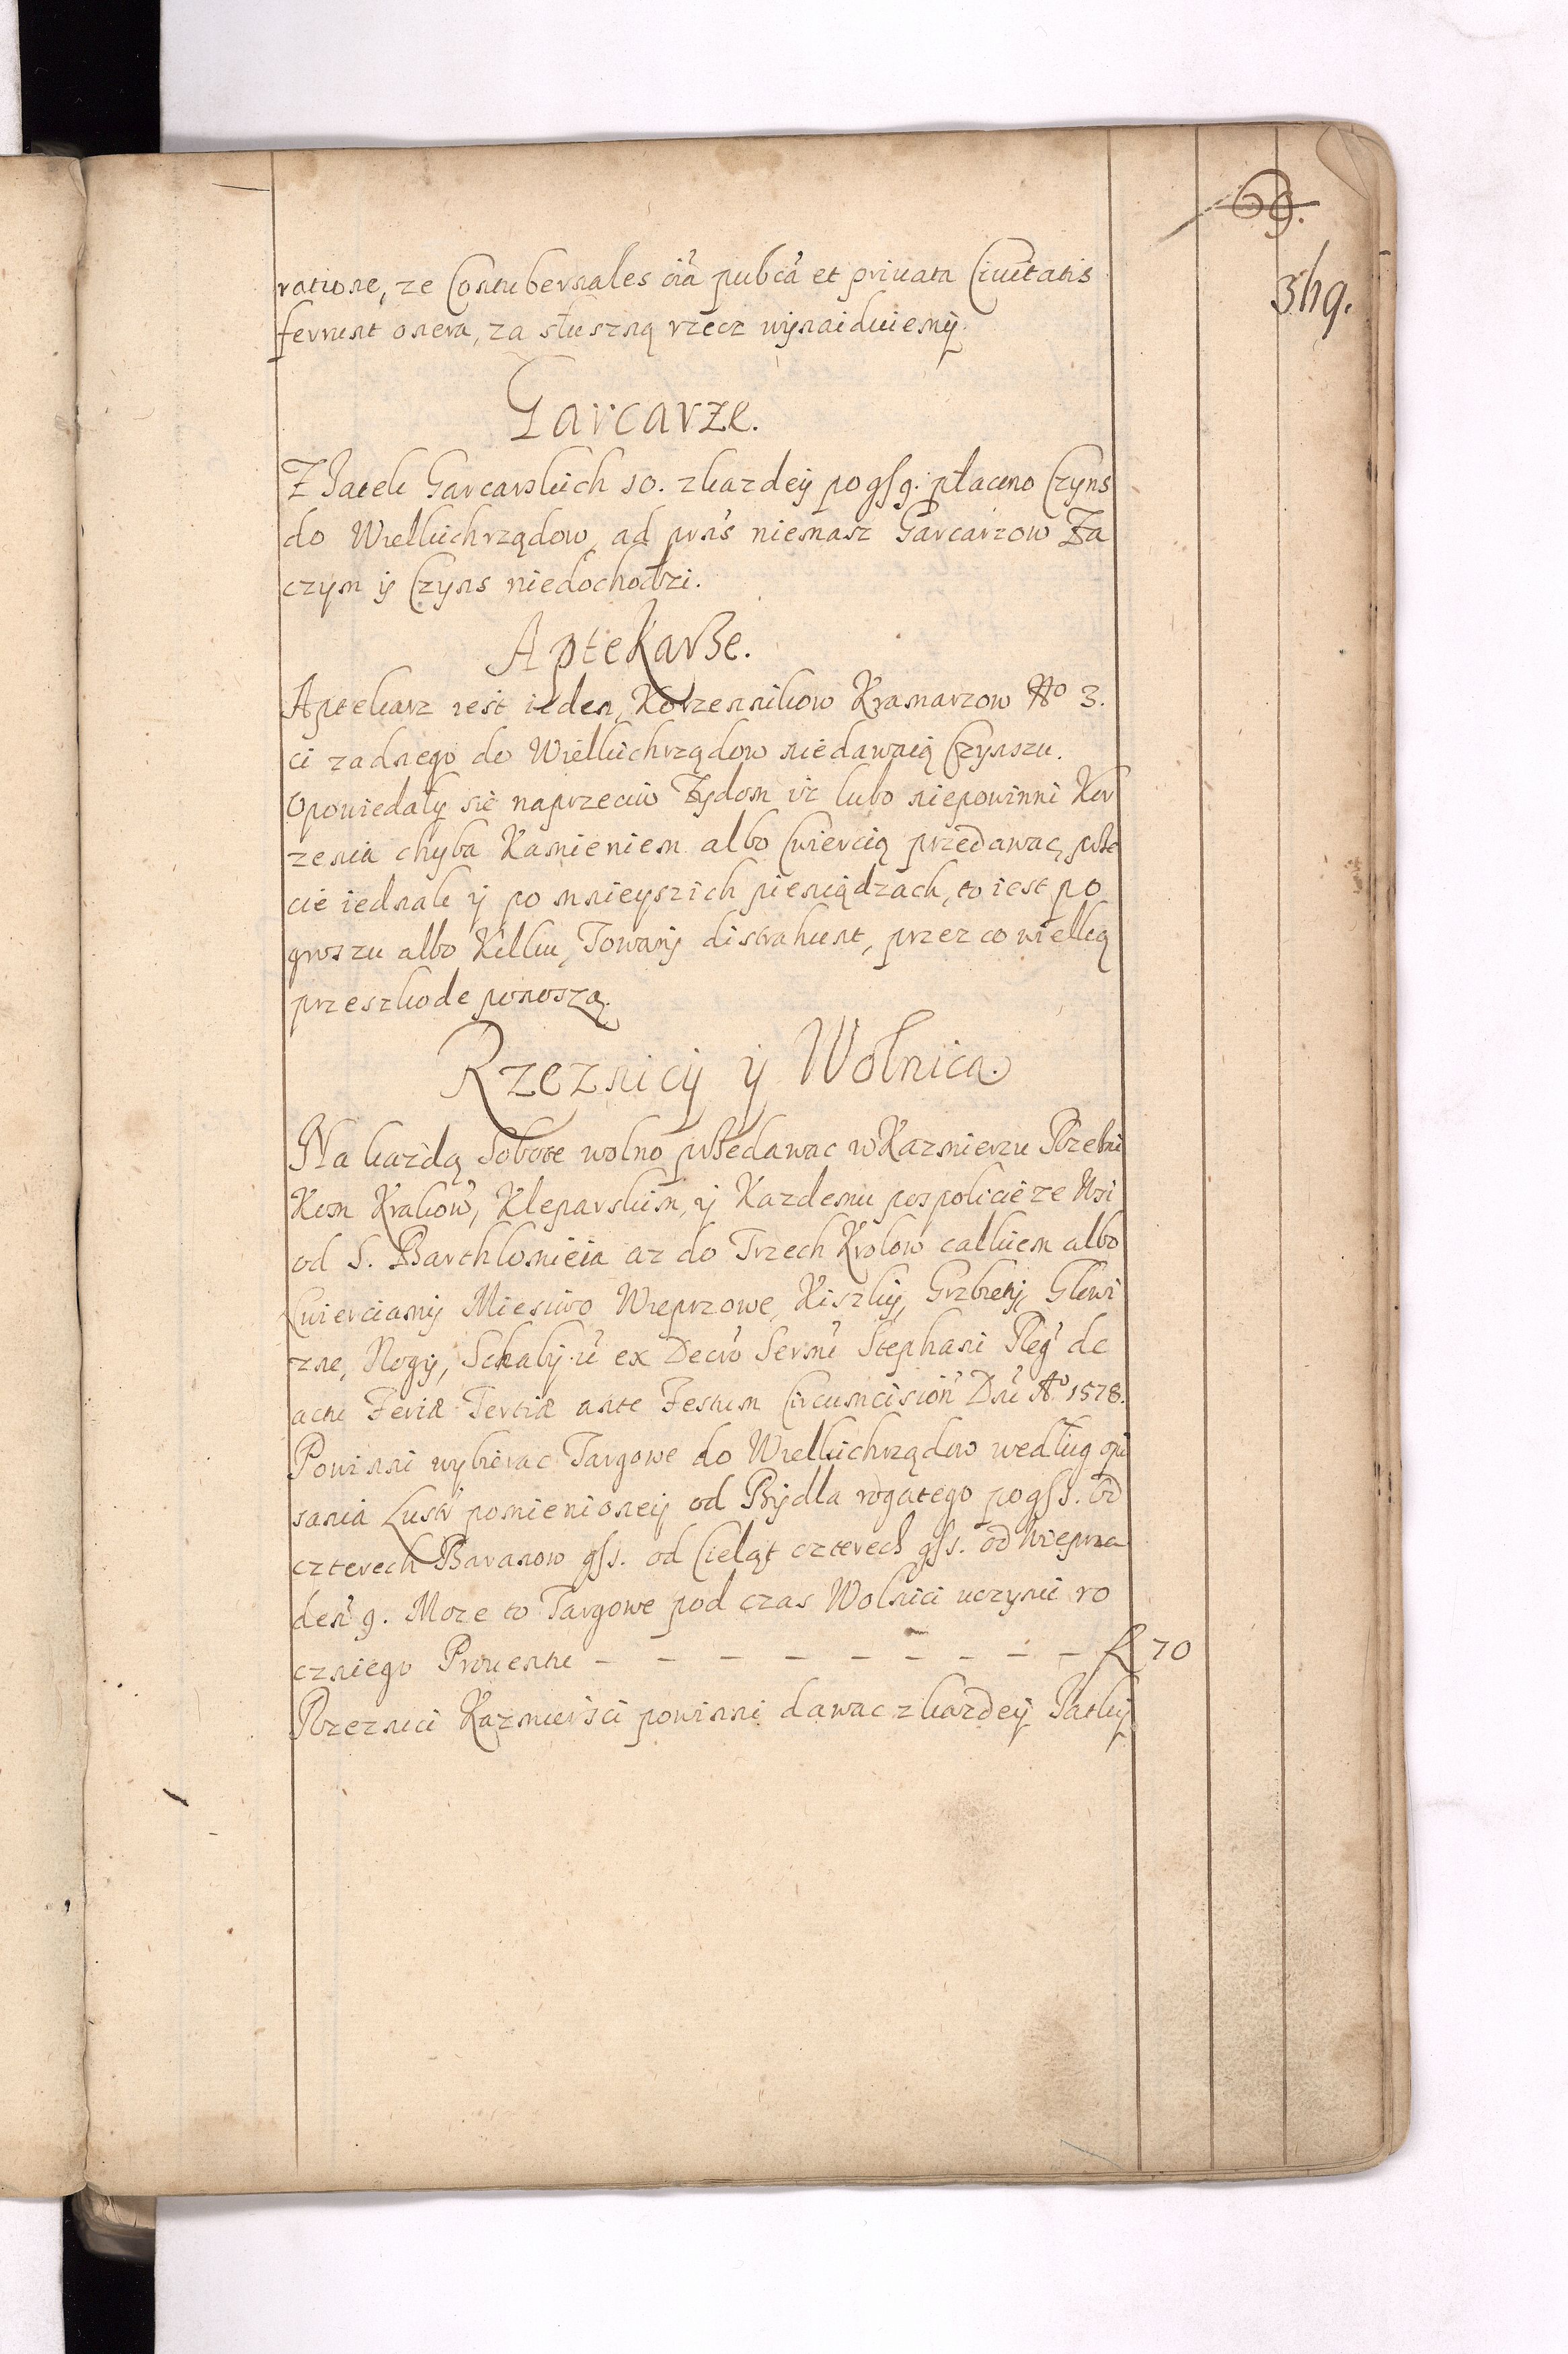 69.
349.
ratione, ze Contubernales oia pubca et priuata Ciuitatis
ferrunt onera, za słuszną rzecz wynaiduiemy.
Garcarze.
Z Iatek Garcarskich 10. zkazdey po gs 9. płacono Czyns
do Wielkichrządow, ad prns niemasz Garcarzow Za
czym y Czyns niedochodzi.
Aptekarze.
Aptekarz iest ieden, Korzennikow Kramarzow No 3.
ci zadnego do Wielkichrządow niedawaią Czynszu.
Opowiedały sie naprzeciw Zydom iz lubo niepowinni Kor
zenia chyba Kamieniem albo Cwiercią przedawac, prze
cie iednak y po mnieyszich pieniądzach, to iest po
groszu albo Kilku, Towary distrahunt, przez co wielką
przeszkode ponoszą.
Rzeznicy y Wolnica.
Na kazdą Sobote wolno przedawac w Kazmierzu Rzezni
Kom Krakow, Kleparskim, y Kazdemu pospolicie ze Wsi
od S. Barthlomieia az do Trzech Krolow calkiem albo
Cwierciamy Miesiwo Wieprzowe, Kiszky, Grzbiety, Glowi
zne, Nogy, Schaby ut ex Decro Sermi Stephani Reg de
actu Feria Tertia ante Festum Circumcision Dni Ao 1578.
Powinni wybierac Targowe do Wielkichrządow według opi
sania Lustr pomienioney od Bydla rogatego po gs 1. od
czterech Baranow gs 1. od Cieląt czterech gs 1. od Wieprza
den 9. Moze to Targowe pod czas Wolnici uczynic ro
czniego Prouentu - - - - - - - - - fl 70
Rzeznici Kazmiersci powinni dawac zkazdey Iatky